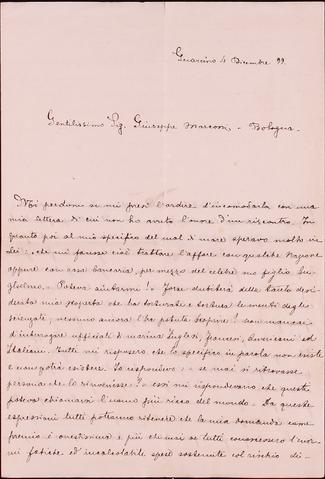 Guarcino 4 Dicembre 99.
Gentilissimo Sig. Giuseppe Marconi - Bologna -
Mi perdoni se mi presi l'ardire d'incomodarla con una
mia lettera di cui non ho avuto l'onore d'un riscontro. In
quanto poi al mio specifico del mal di mare speravo molto in
Lei: che mi facesse cioè trattare l'affare con qualche
oppure con casa bancaria, per mezzo del celebre suo figlio Gu-
glielmo. - Poteva aiutarmi! - Forse dubiterà della tanto desi-
derata mia scoperta che ha torturate e tortura le menti degli
scienziati, nessuno ancora l'ha potuta scoprire! Sono
d'interrogare ufficiali di marina Inglesi, Francesi, Americani ed
Italiani. Tutti mi risposero che lo specifico in parola non esiste
e non potrà esistere. Io rispondevo: - e se mai si ritrovasse
persona che lo rinvenisse? - essi mi rispondevano che questi
poteva chiamarsi l'uomo più ricco del mondo. - Da queste
espressioni tutti potranno ritenere che la mia domanda come
premio è onestissima e più che mai se tutti conoscessero l'enor-
mi fatiche ed incalcolabili spese sostenute col rischio di-